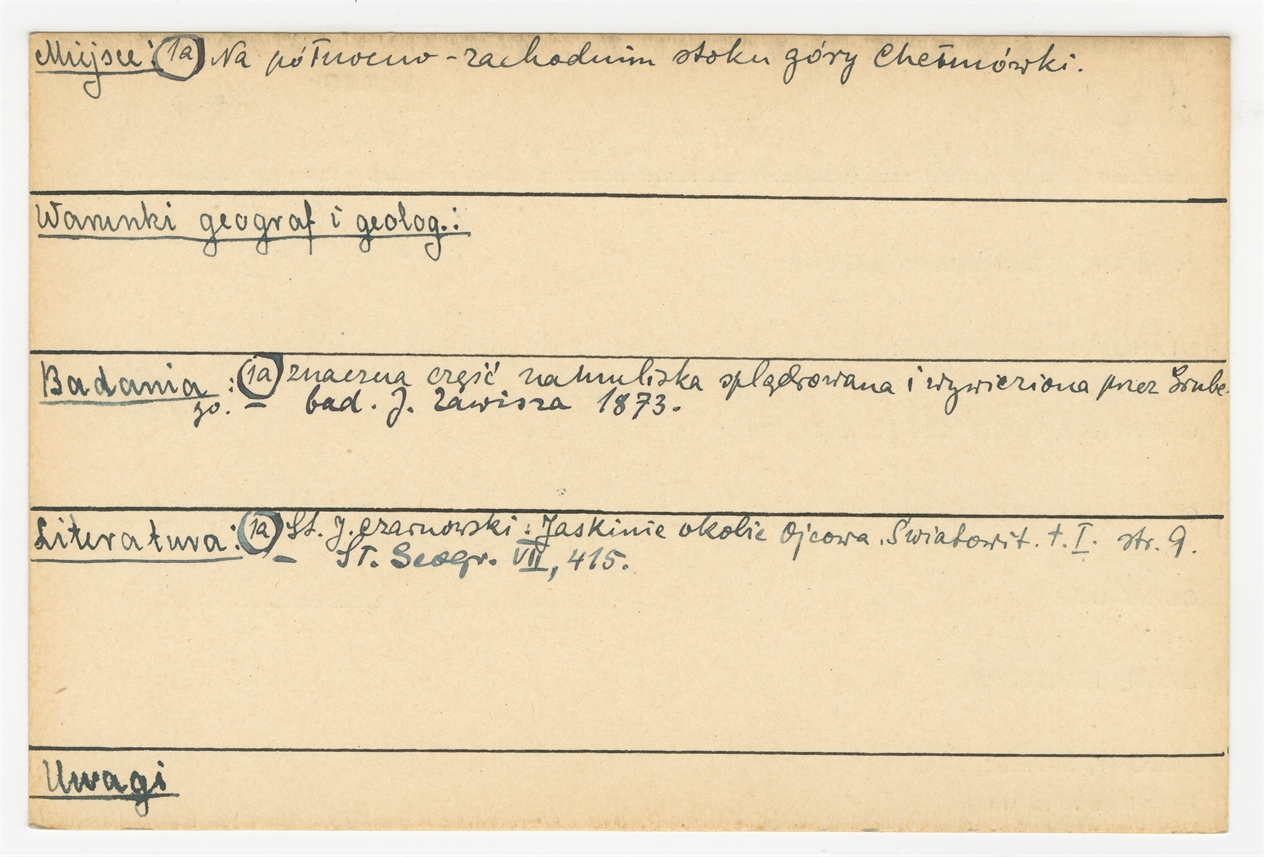 Miejsce: 1a Na północno-zachodnim stoku góry Chełmówki.
Warunki geograf i geolog.:
Badania: 1a znaczna część namuliska splądrowana i wywieziona przez Grube
go. – bad. J. Zawisza 1873.
Literatura: 1a St. J. Czarnowski: Jaskinie okolic Ojcowa. Światowit. t. I. str. 9.
– Sł. Geogr. VII, 415.
Uwagi